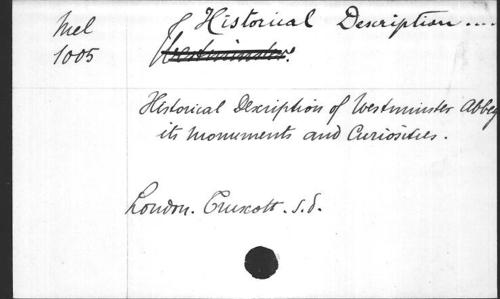 Mel
1005
Historical Description....
Westminster.
Historical Description of Westminster Abbey
its monuments and Curiosities.
London. Truscott. s.d.